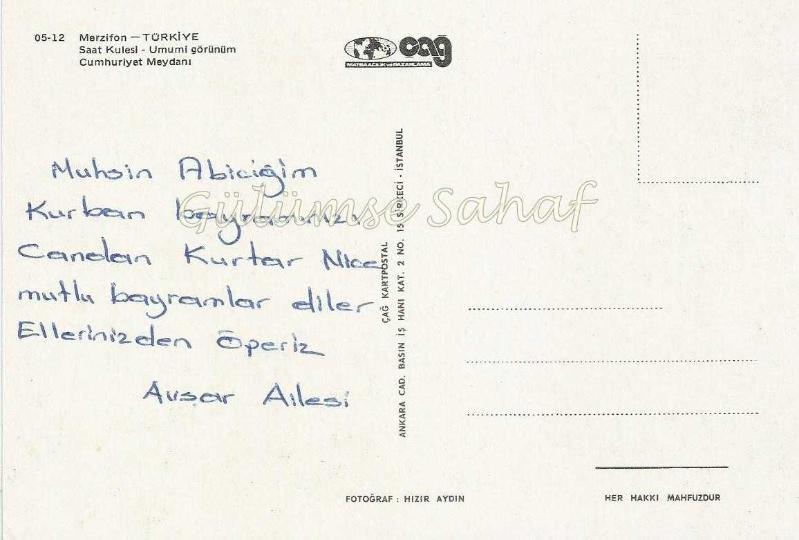 05-12 Merzifon — TÜRKİYE
Saat Kulesi - Umumi görünüm
Cumhuriyet Meydanı
çağ
MATBAACILIK ve PAZARLAMA
Muhsin Abiciğim
Kurban bayramınızı
Candan Kurtar Nice
mutlu bayramlar diler
Ellerinizden Öperiz
Avşar Ailesi
Gülümse Sahaf
ÇAĞ KARTPOSTAL
ANKARA CAD. BASIN İŞ HANI KAT. 2 NO. 15 SİRKECİ - İSTANBUL
FOTOĞRAF : HIZIR AYDIN
HER HAKKI MAHFUZDUR